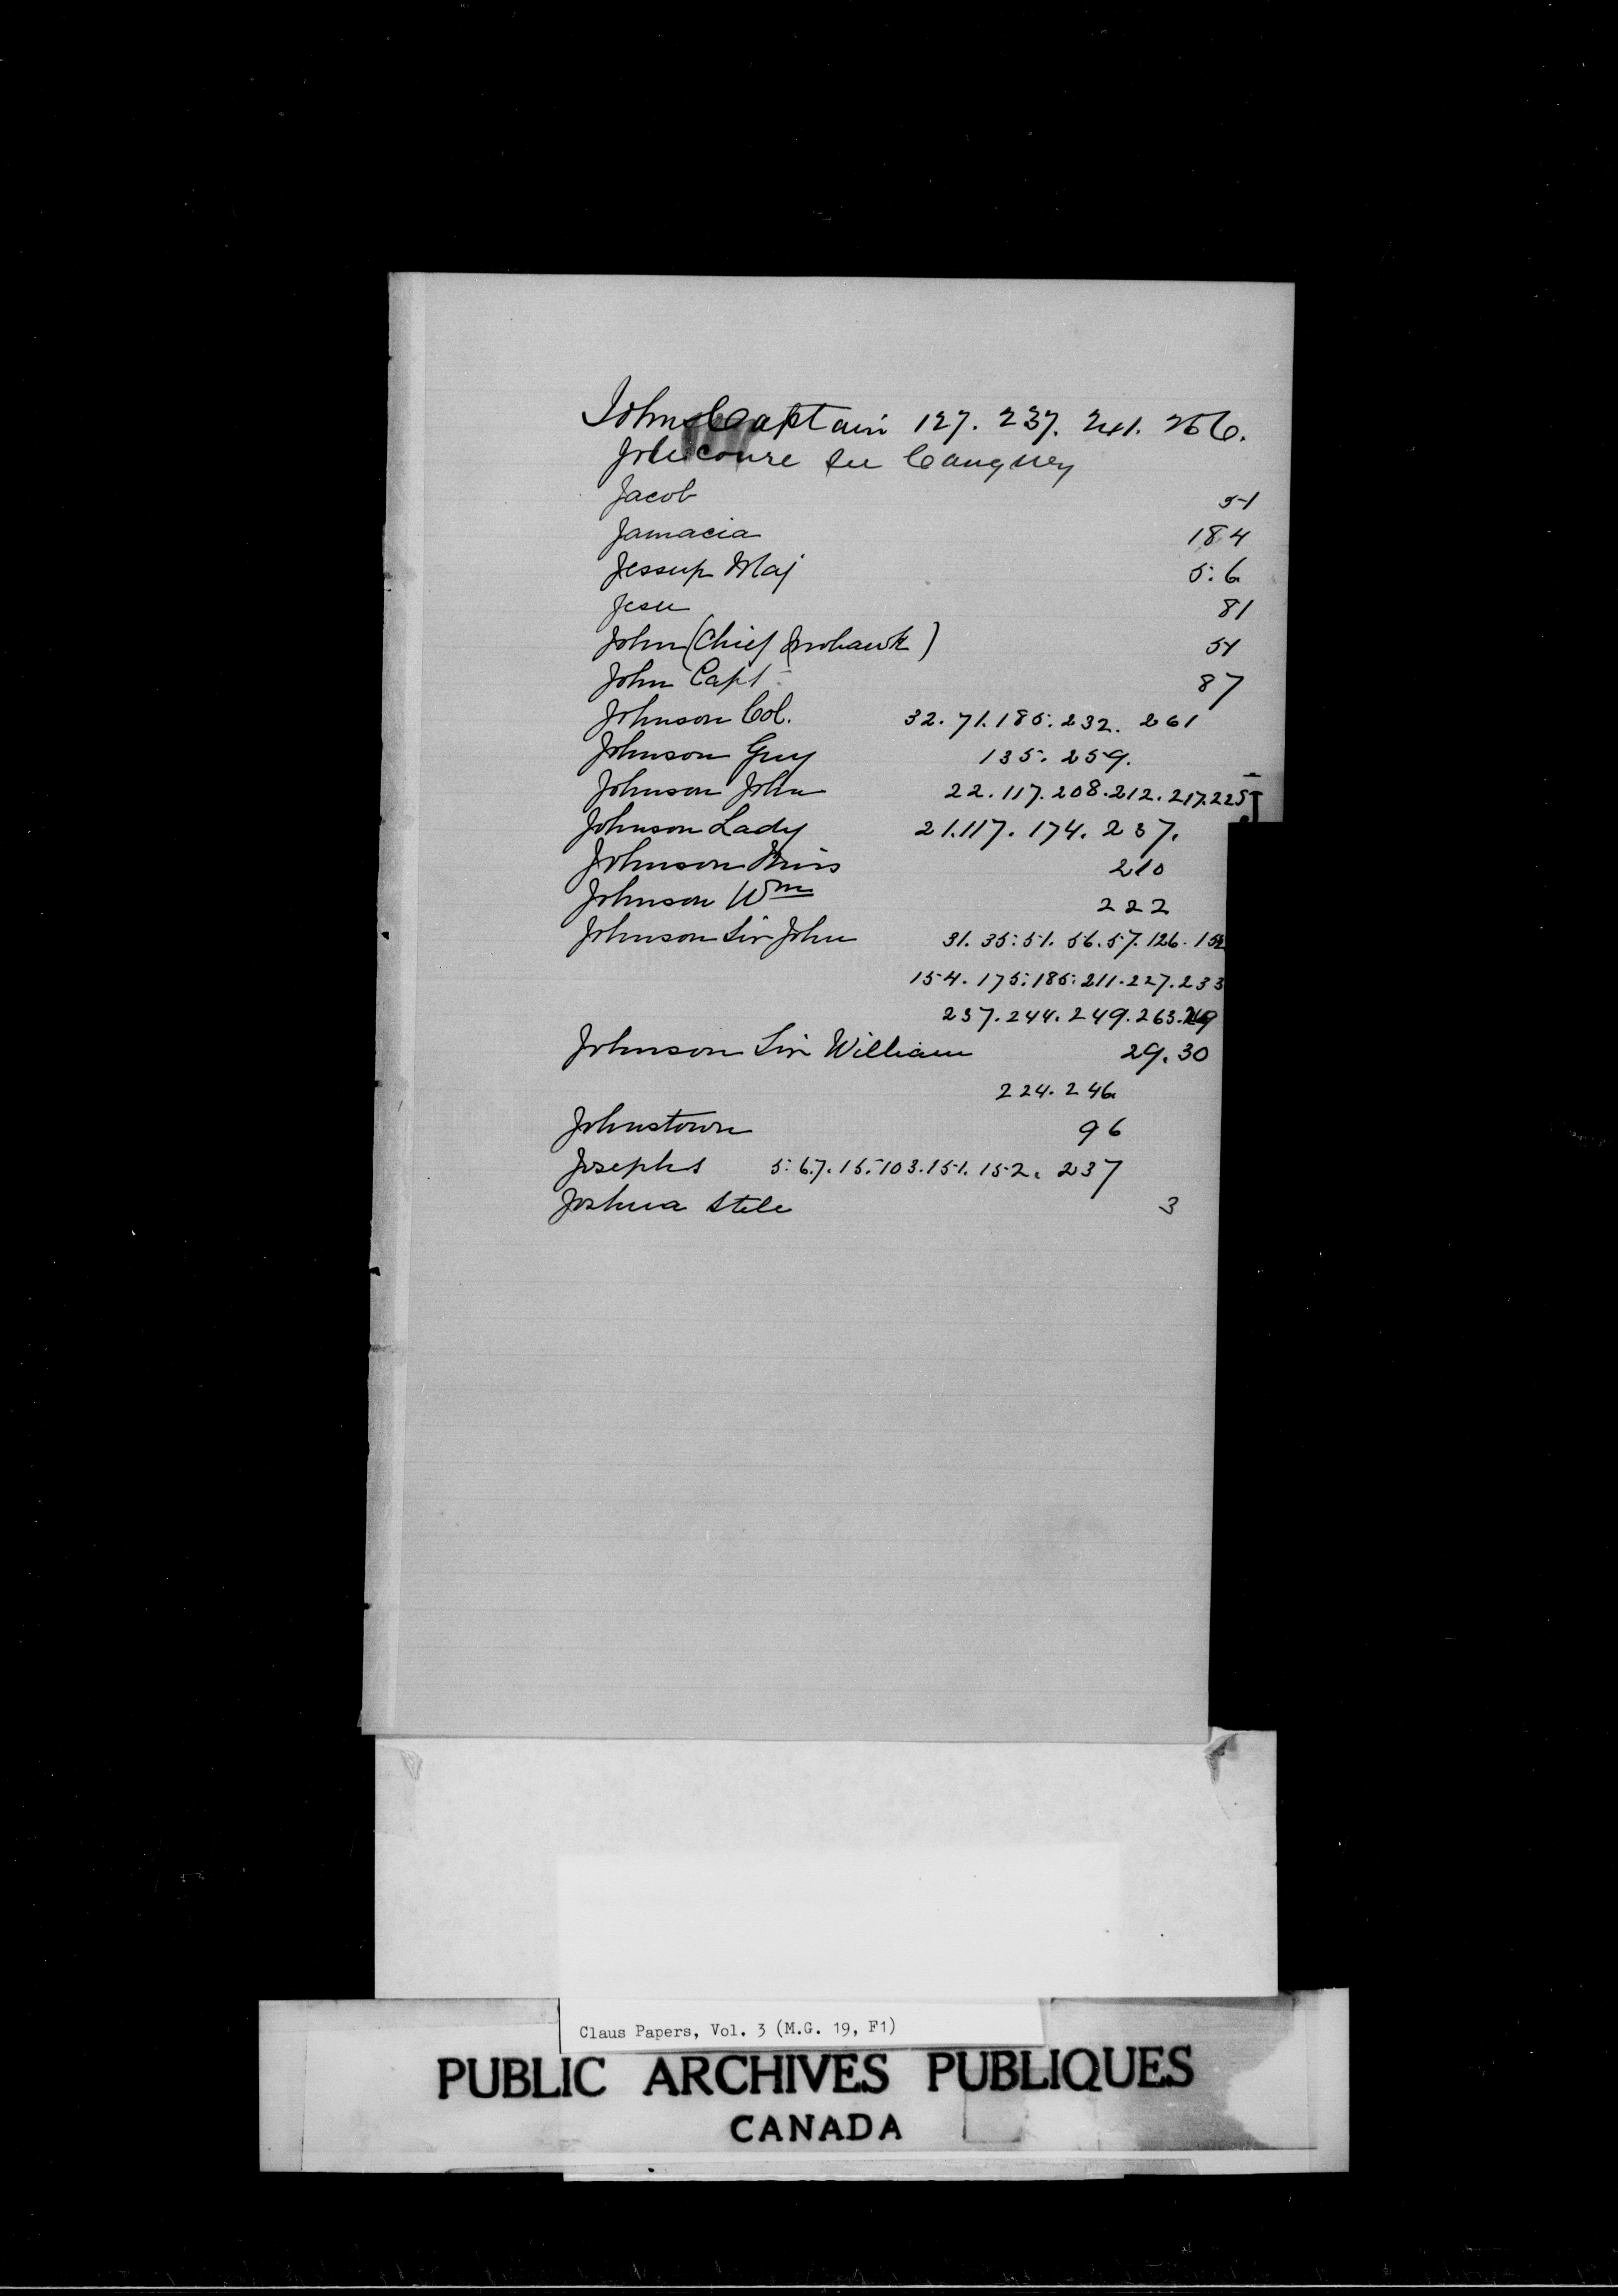 Johns Captain 127. 237. 241. 266.
Jolicoure see Cangney
Jacob 51
Jamacia 184
Jessup Maj 5. 6
Jesu 81
John (Chief Mohawk) 51
John Capt 87
Johnson Col. 32. 71. 185. 232. 261
Johnson Guy 135. 259.
Johnson John 22. 117. 208. 212. 217. 225
J
Johnson Lady 21. 117. 174. 237.
Johnson Miss 210
Johnson Wm 222
Johnson Sir John 31. 35. 51. 56. 57. 126. 152
154. 175. 185. 211. 227. 233
237. 244. 249. 263.
Johnson Sir William 29. 30
224. 246
Johnstown 96
Josephs 5. 6. 7. 15. 103. 151. 152. 237
Joshua Stele 3
Claus Papers, Vol. 3 (M.G. 19, F1)
PUBLIC ARCHIVES PUBLIQUES
CANADA